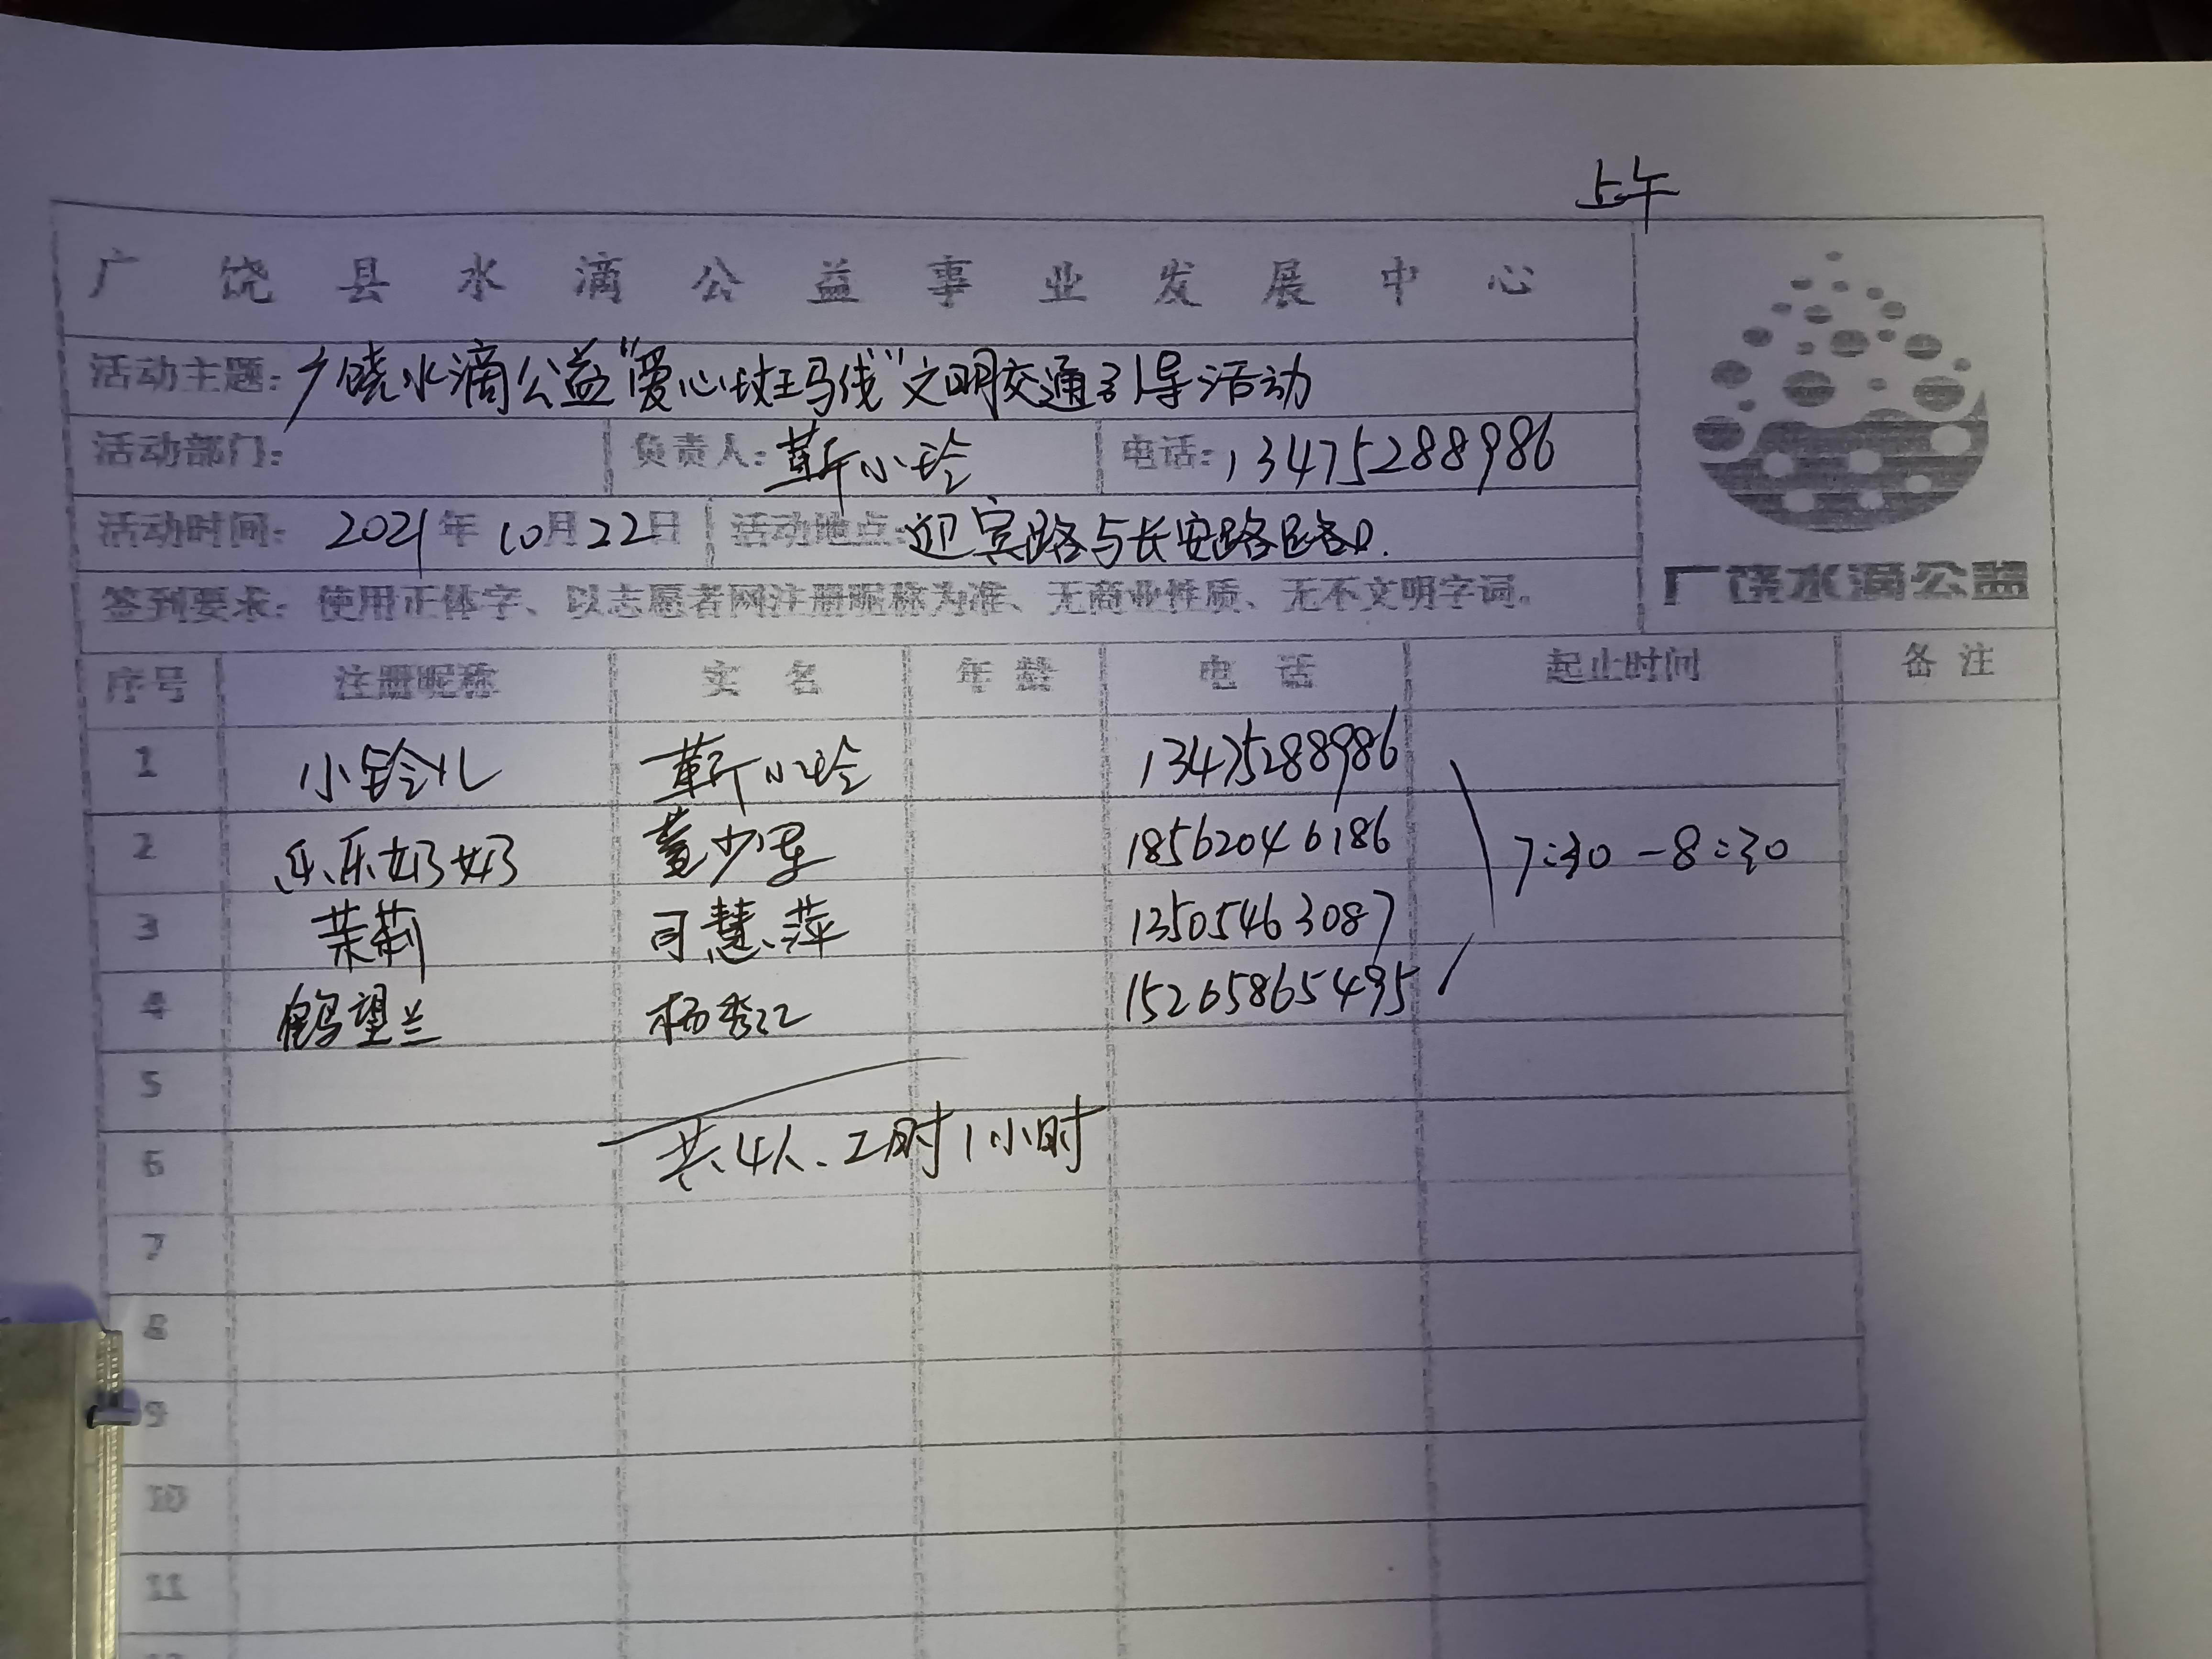 上午
广饶县水滴公益事业发展中心
活动主题：广饶水滴公益“爱心斑马线”文明交通引导活动
活动部门： 负责人：靳小玲 电话：13475288986
活动时间：2021年10月22日 活动地点：迎宾路与长安路路口.
签到要求：使用正体字、以志愿者网注册昵称为准、无商业性质、无不文明字词。
广饶水滴公益
序号 注册昵称 实名 年龄 电话 起止时间 备注
1 小铃儿 靳小玲 13475288986
2 乐乐奶奶 董少军 18562046186 7:30-8:30
3 茉莉 司慧萍 13505463087
4 鹤望兰 杨秀江 15265865495
5
6 共4人、工时1小时
7
8
9
10
11